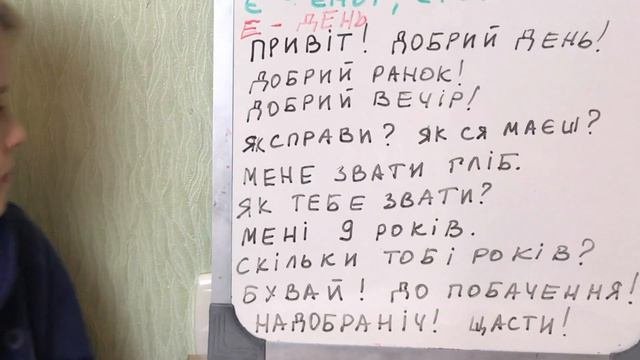 Е - ДЕНЬ
ПРИВІТ! ДОБРИЙ ДЕНЬ!
ДОБРИЙ РАНОК!
ДОБРИЙ ВЕЧІР!
ЯК СПРАВИ? ЯК СЯ МАЄШ?
МЕНЕ ЗВАТИ ГЛІБ.
ЯК ТЕБЕ ЗВАТИ?
МЕНІ 9 РОКІВ.
СКІЛЬКИ ТОБІ РОКІВ?
БУВАЙ! ДО ПОБАЧЕННЯ!
НАДОБРАНІЧ! ЩАСТИ!